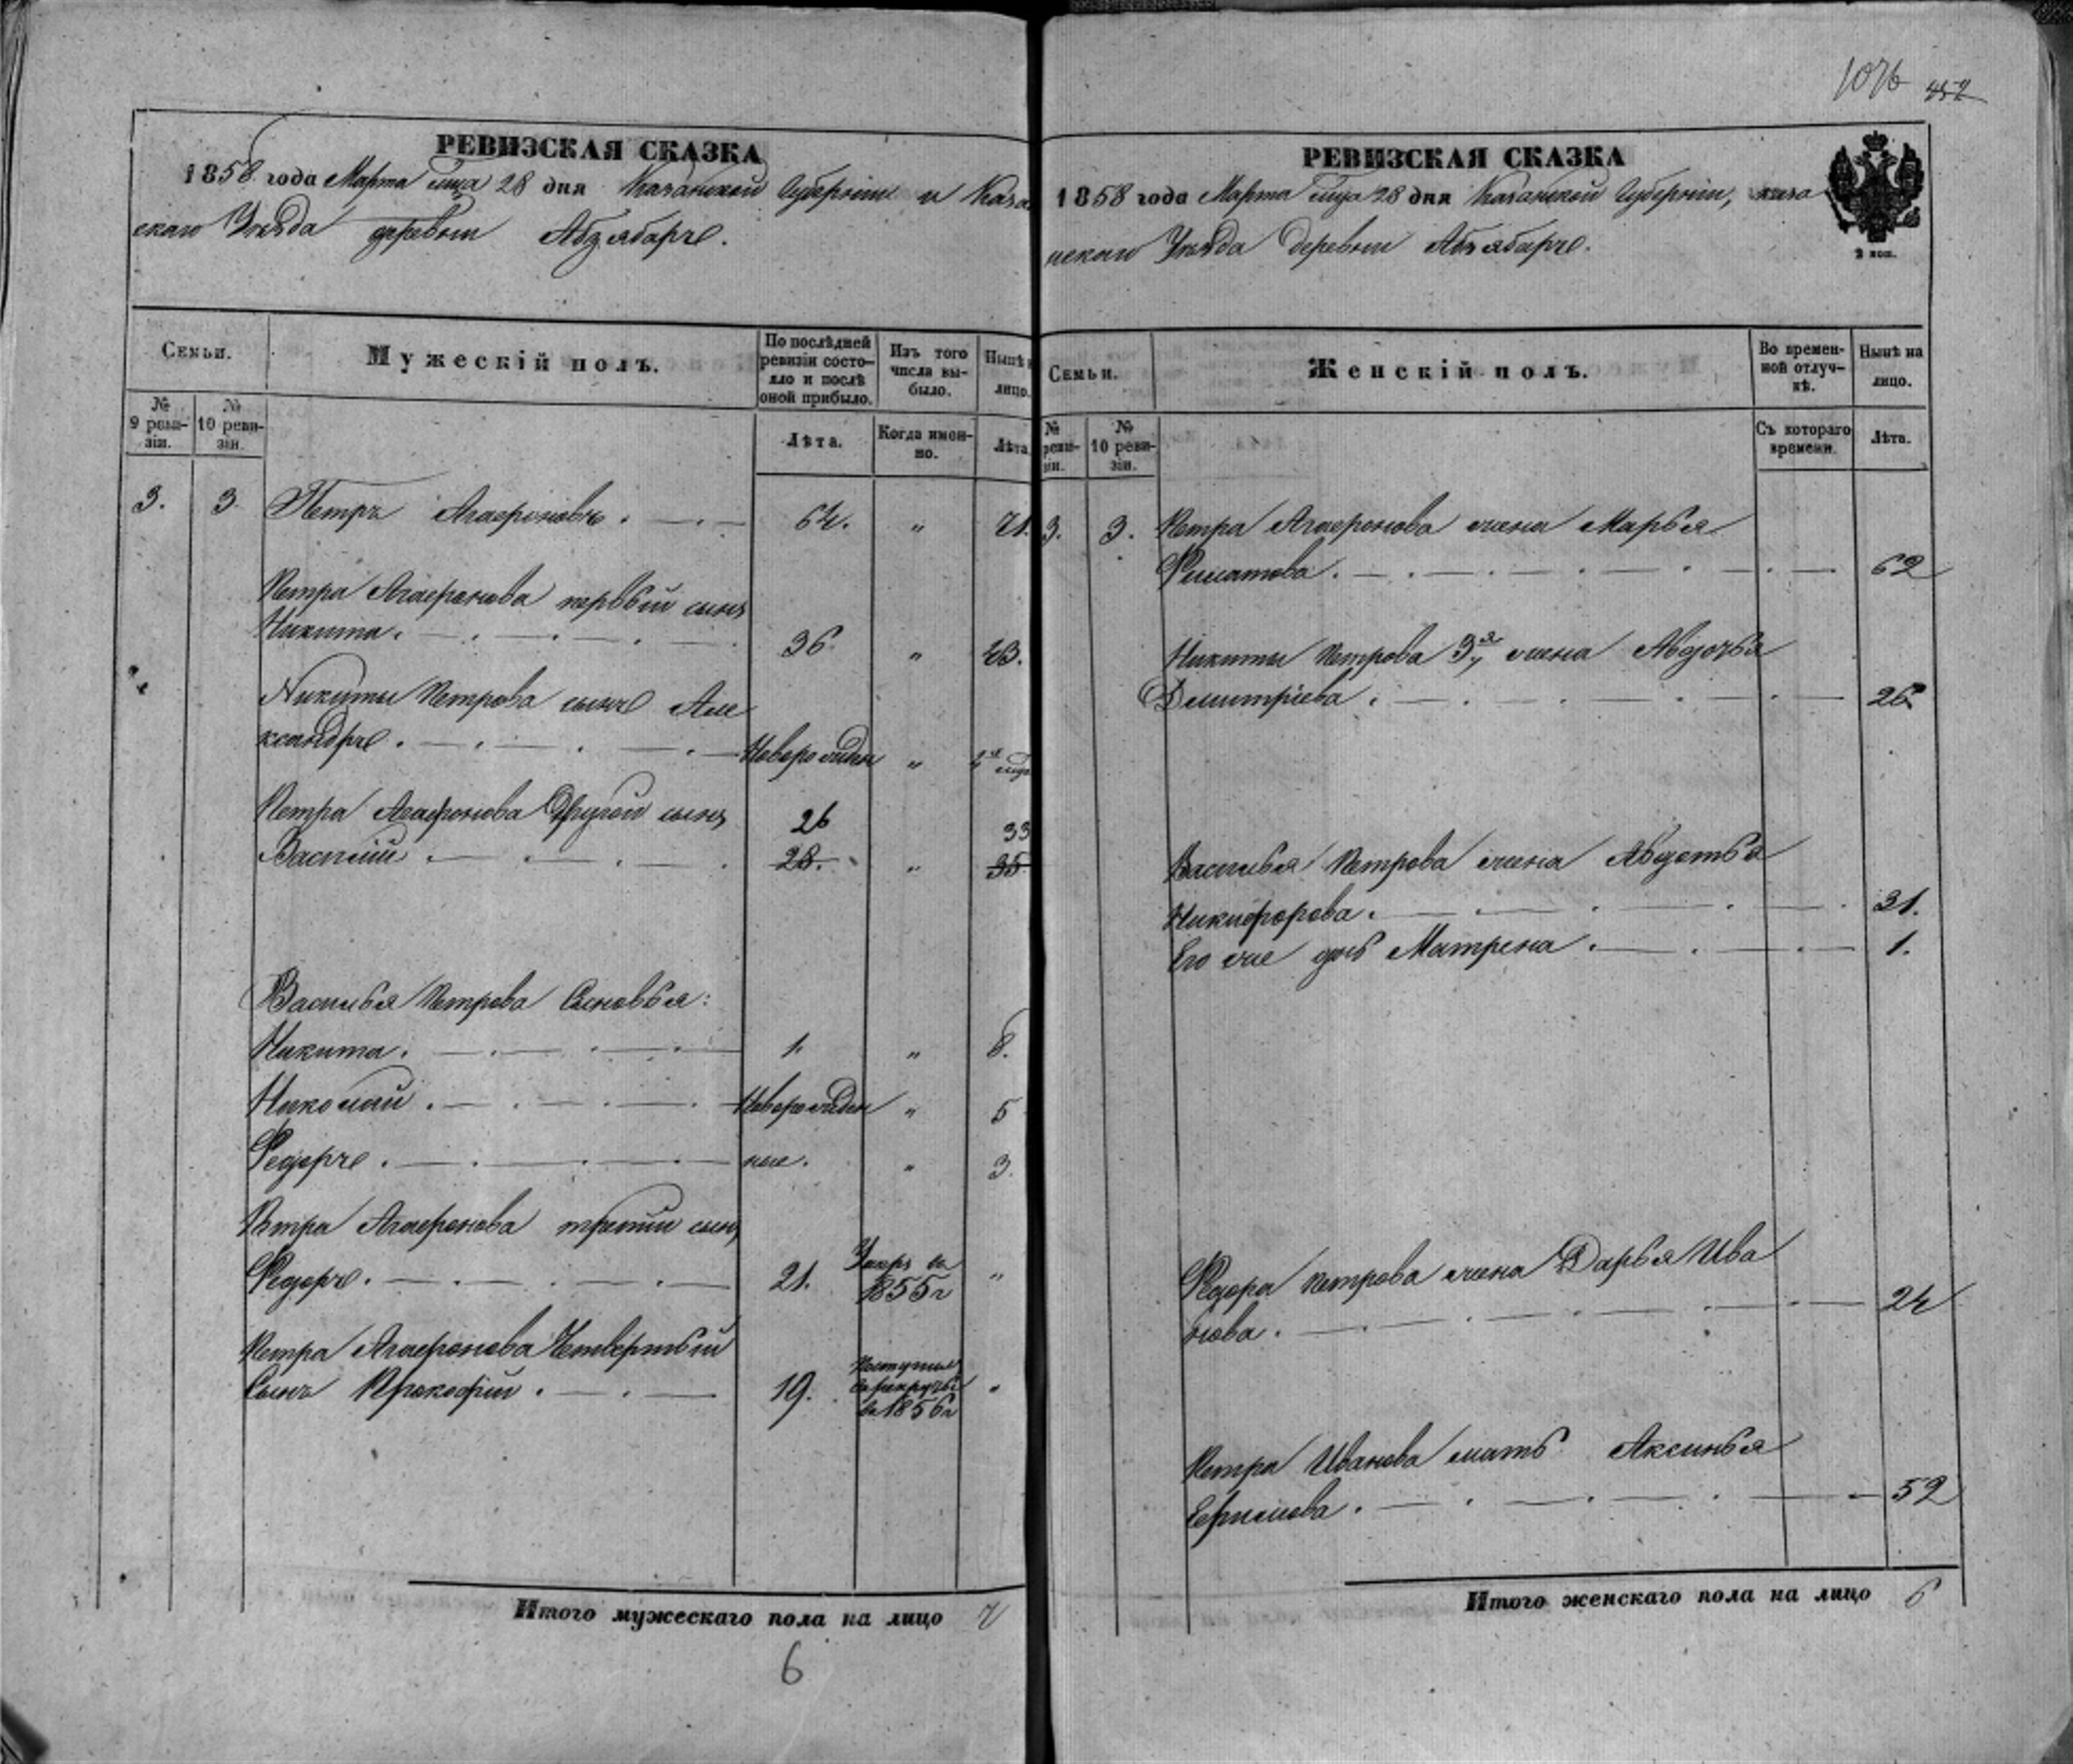 РЕВИЗСКАЯ СКАЗКА
1858 года Марта мца 28 дня Казанской Губернiи и Каза
скаго Уѣзда деревни Абзябаръ.
Семьи.
Мужескiй полъ.
По послѣдней ревизiи состояло и послѣ оной прибыло.
Изъ того числа выбыло.
Нынѣ н лицо.
№ 9 ревизiи.
№ 10 ревизiи.
Лѣта.
Когда именно.
Лѣта.
3. 3 Петръ Агафоновъ. 64. „ 71.
Петра Агафонова первый сынъ
Никита. 36. „ 43.
Никиты Петрова сынъ Але
ксандръ. Новорожден „
Петра Агафонова Другой сынъ 26 33
Василiй 28. „ 35.
Василья Петрова Сыновья:
Никита. 1. „ 8.
Николай. Новорожден „ 5
Федоръ. ные. „ 3.
Петра Агафонова третiй сынъ
Федоръ. 21. Умеръ въ 1855г „
Петра Агафонова Четвертый
Сынъ Прокофiй. 19. Поступилъ въ рекруты въ 1856г „
Итого мужескаго пола на лицо 7
6
1076 452
РЕВИЗСКАЯ СКАЗКА
1858 года Марта мца 28 дня Казанской Губернiи, каза
нскаго Уѣзда Деревни Абзябаръ.
2 коп.
Семьи.
Женскiй полъ.
Во временной отлучкѣ.
Нынѣ на лицо.
№ реви-зiи.
№ 10 ревизiи.
Съ котораго времени.
Лѣта.
3. 3. Петра Агафонова жена Марья
Филатова. 62
Никиты Петрова 3я жена Авдотья
Дмитрiева. 26
Василья Петрова жена Авдотья
Никифорова. 31.
Его же дчь Матрена. 1.
Федора Петрова жена Дарья Ива
нова. 24
Петра Иванова мать Аксинья
Ефимова. 52
Итого женскаго пола на лицо 6